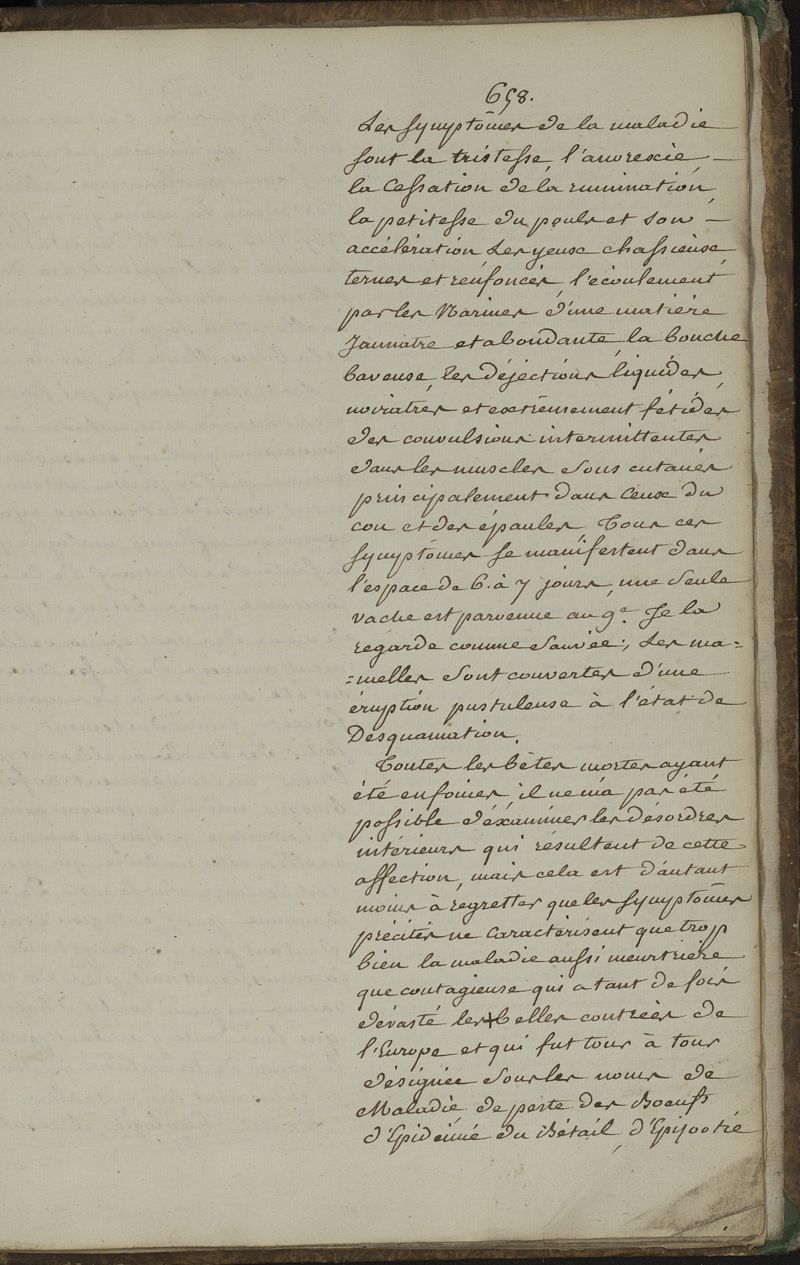 658.
Les symptômes de la maladie
sont la tristesse, l'anorexie —
la Cessation de la rumination,
la petitesse du pouls et son —
accélération, Les yeux chassieux,
ternes et renfoncés, l'écoulement
par les Narines d'une matière
Jaunatre et abondante, la bouche
baveuse, les déjéctions liquides,
noiratres et extrêmement fétides,
des convulsions intermittentes
dans les muscles sous cutanés
principalement dans Ceux du
cou et des épaules, Tous ces
symptômes se manifestent dans
l'espace de 6. à 7 jours, une seule
vache est parvenue au 9e. Je la
regarde comme sauvée:, Les ma=
=melles sont couvertes d'une
éruption pustuleuse à l'état de
Desquamation.
Toutes les bêtes mortes ayant
été enfouies, il ne m'a pas été
possible d'éxaminer les désordres
intérieurs qui résultent de cette
affection, mais cela est d'autant
moins à regretter que les symptômes
précités ne caractérisent que trop
bien la maladie aussi meurtrière
que contagieuse qui a tant de fois
dévasté les + belles contrées de
l'Europe et qui fut tour à tour
désignée sous les noms de
Maladie, de peste des Boeufs
d'Epidémie du Bétail, d'Epizootie